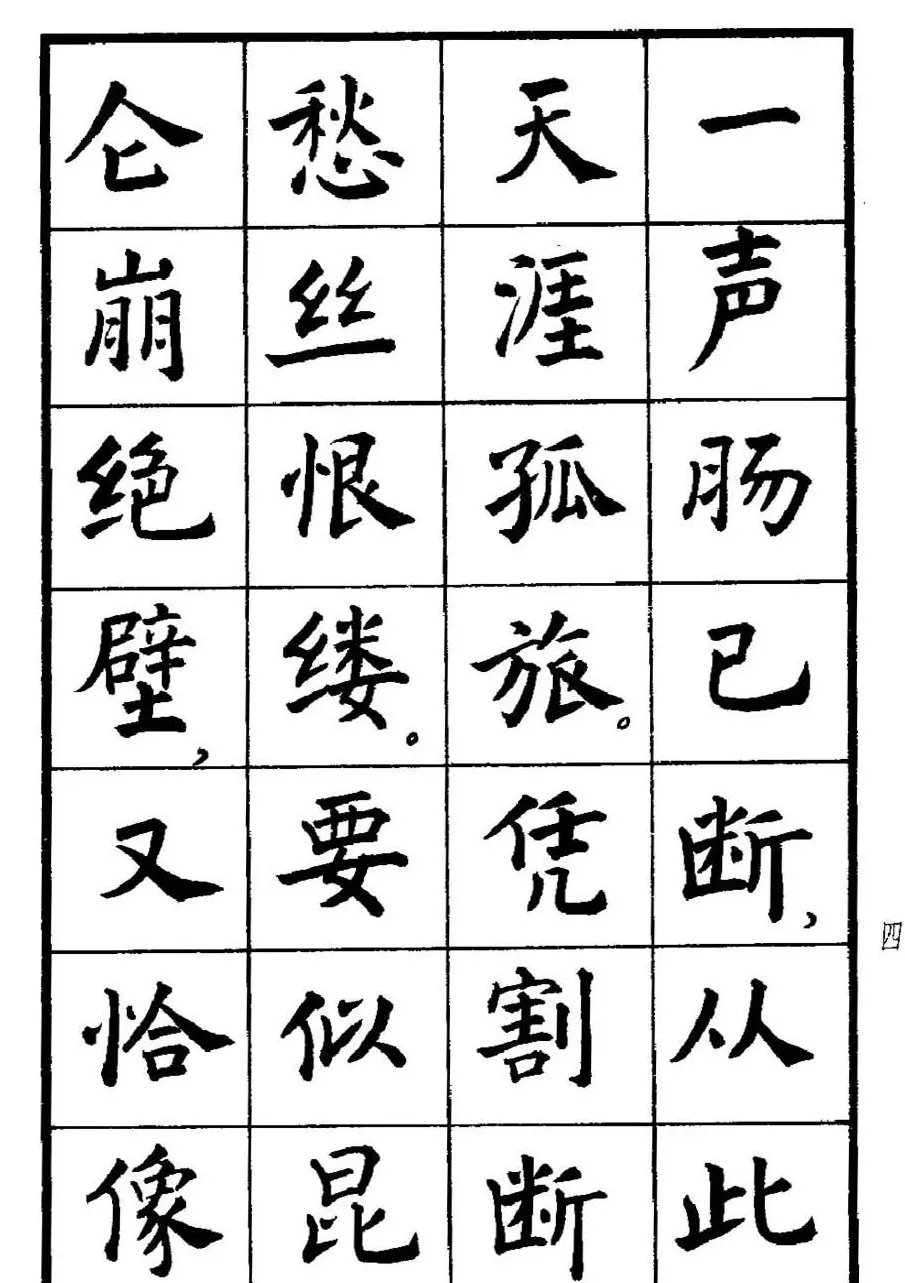 一声肠已断,从此
天涯孤旅。凭割断
愁丝恨缕。要似昆
仑崩绝壁,又恰像
四